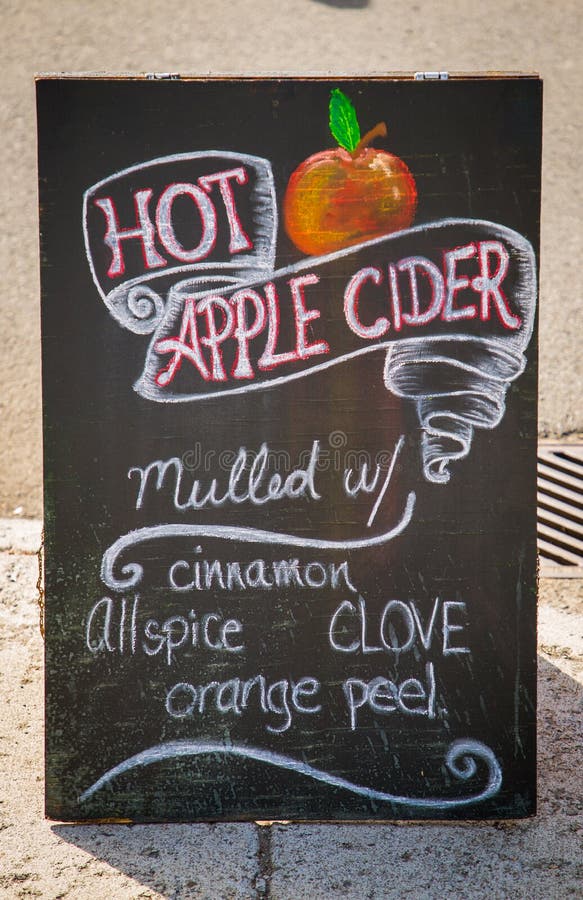 HOT
APPLE CIDER
Mulled w/
cinnamon
Allspice CLOVE
orange peel.